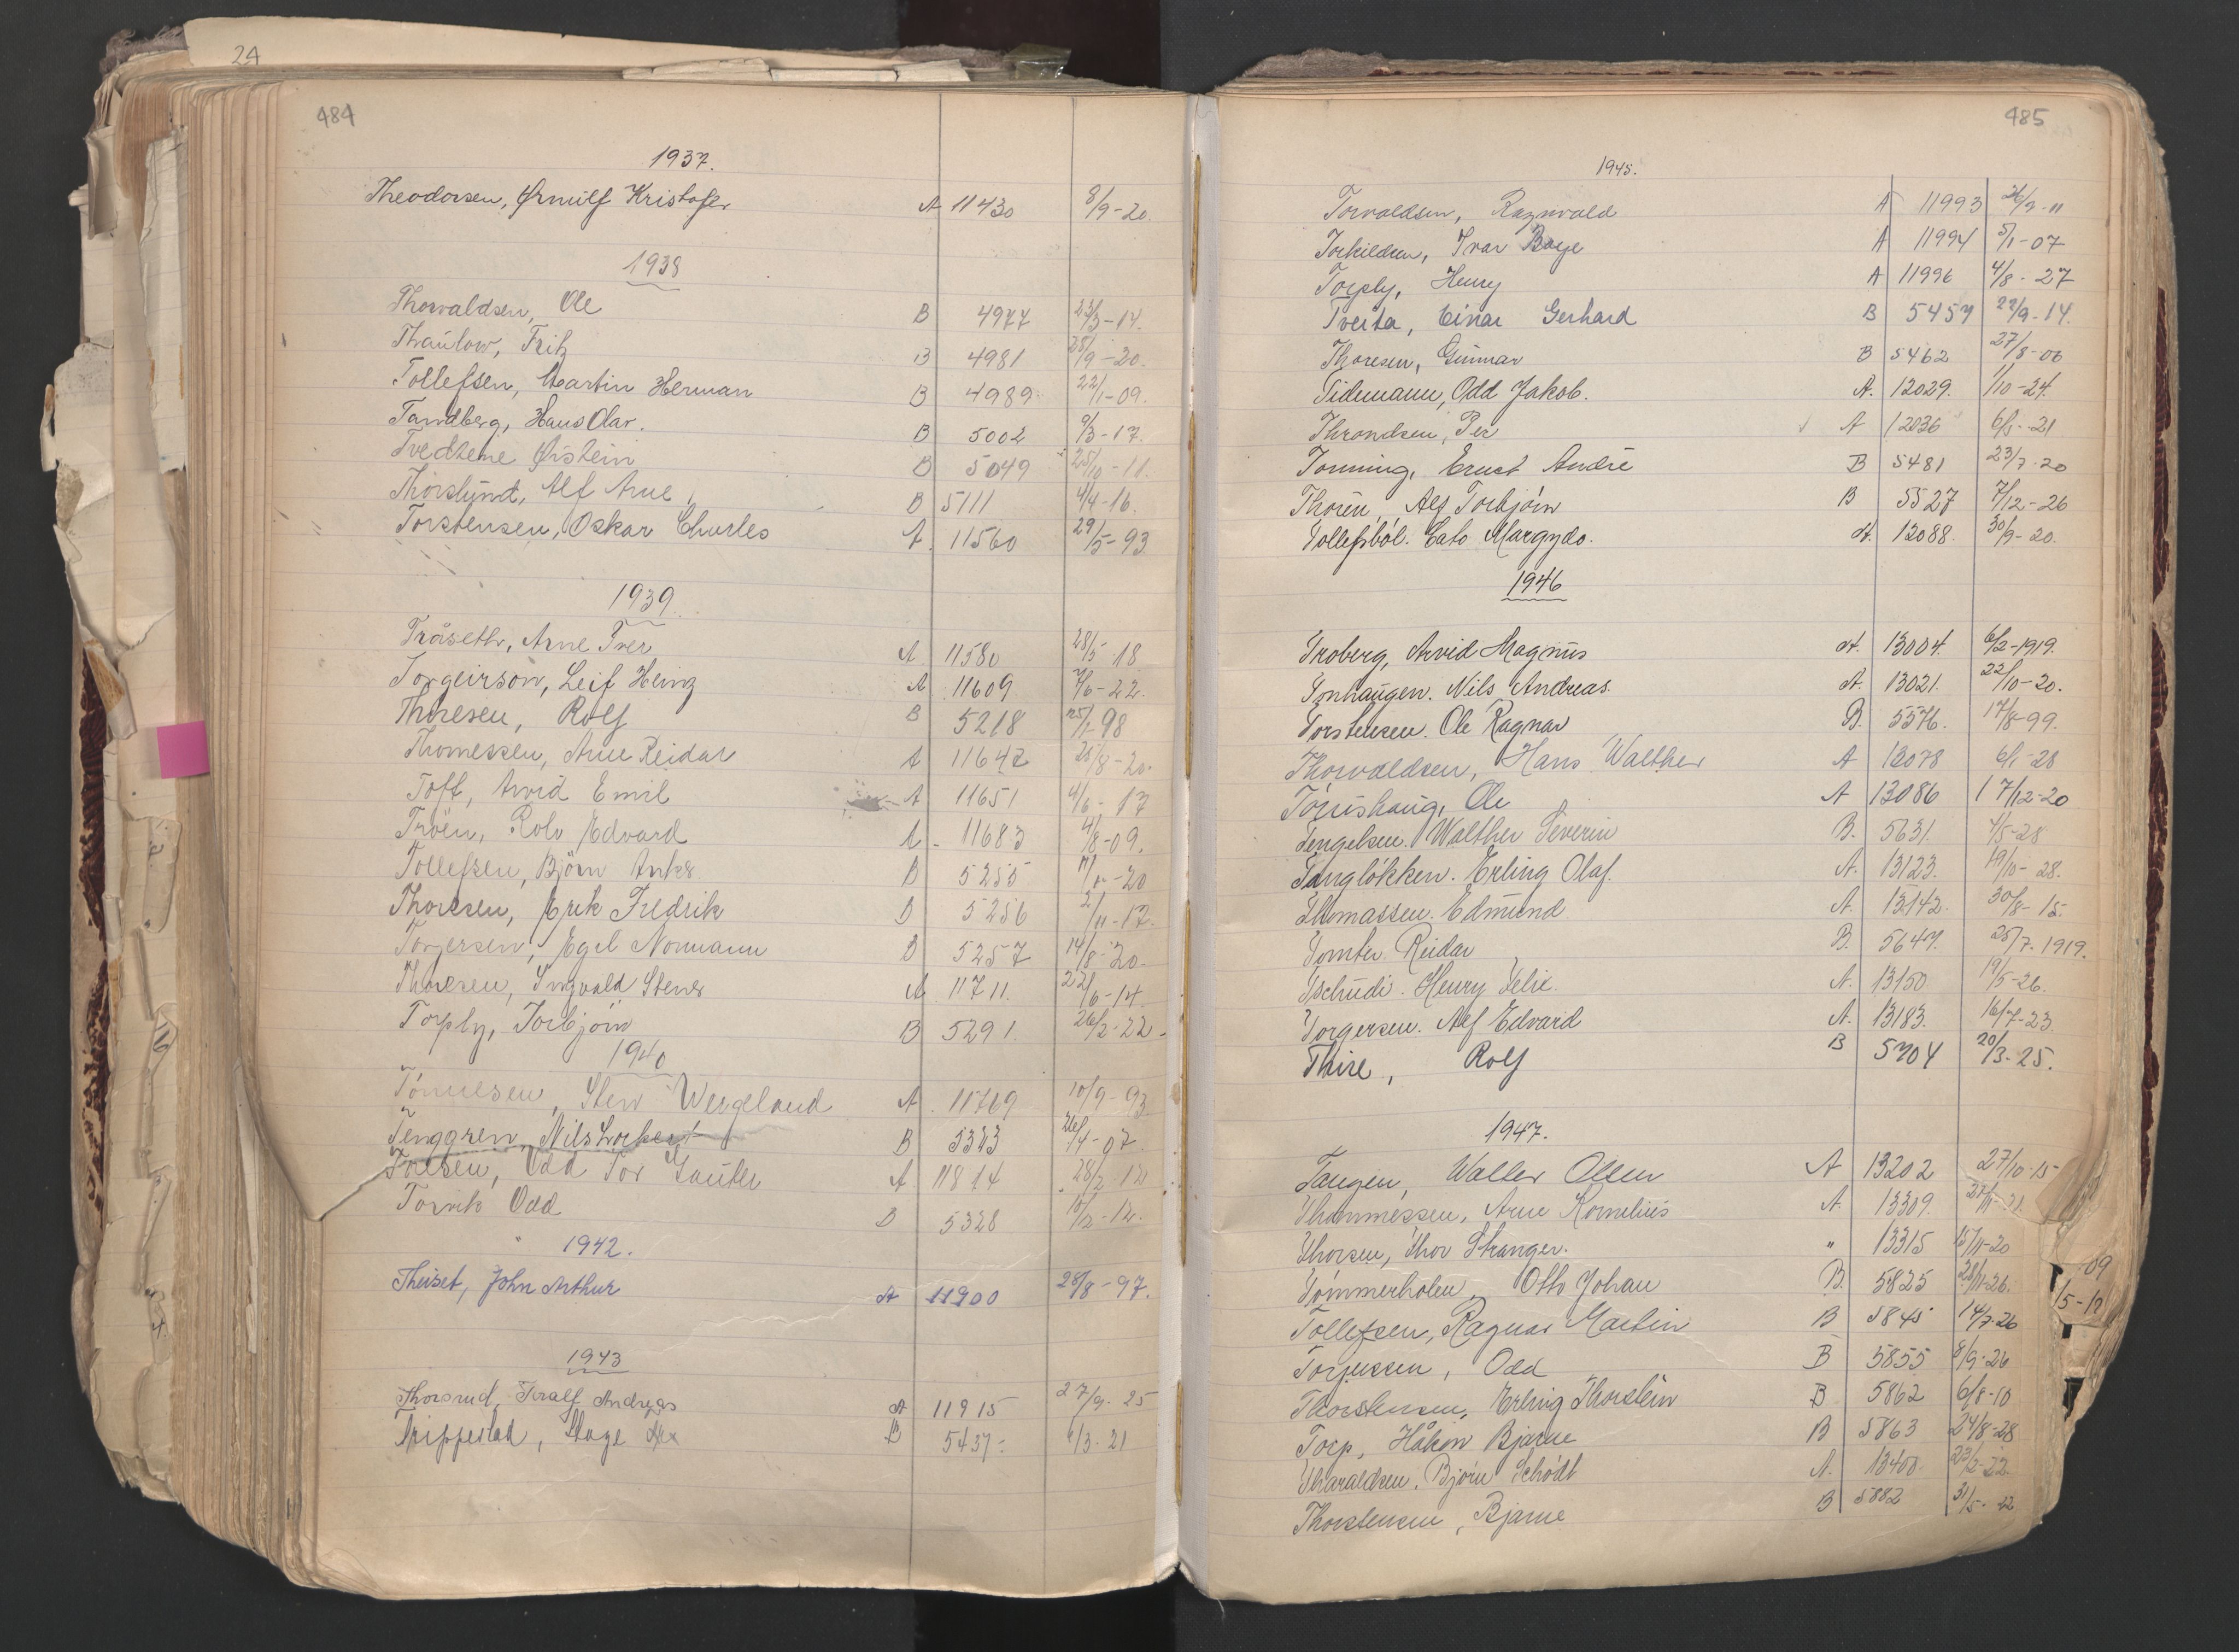 24
484
1937.
Theodorsen, Ørnulf Kristofer A 11430 8/9-20.
1938
Thorvaldsen, Ole B 4977 23/3-14.
Thaulow, Fritz B 4981 28/9-20.
Tollefsen, Martin Herman B 4989 22/1-09.
Tandberg, Hans Olav. B 5002 9/3-17.
Tvedtene Øistein B 5049 25/10-11.
Thorslund, Alf Arne B 5111 4/4-16.
Torstensen, Oskar Charles A. 11560 29/5-93
1939
Tråseth, Arne Iver A 11580 28/5-18
Torgeirson, Leif Heinz A 11609 7/6-22.
Thoresen, Rolf B 5218 25/1-98
Thomessen, Arne Reidar A 11647 28/8-20.
Toft, Arvid Emil A 11651 4/6-17
Tröen, Rolv Edvard A- 11683 4/8-09.
Tollefsen, Björn Anker B 5255 -20
Thoresen, Erik Fredrik B 5256 2/11-17.
Torgersen, Egil Normann B 5257 14/8-20.
Thoresen, Ingvald Stener A 11711. 22/6-14.
Torply, Torbjörn B 5291. 26/2-22-
1940
Tönnesen, Sten Wergeland A 11769 10/9-93
Tenggren, Nils B 5323 26/4-07.
Toresen, Odd Tor Gauter A 11814 28/2-12
Torvik Odd B 5328 10/2-12.
1942.
Theiset, John Arthur A 11900 28/8-97.
1943
Thorsrud, Toralf Andreas A 11915 27/9-25
Trippestad, Hage B 5437- 6/3-21
485
1945.
Torvaldsen, Ragnvald A 11993 26/9-11
Torkildsen, Ivar Boye A 11994 5/1-07
Torply, Henry A 11996 4/8-27
Tveita, Einar Gerhard B 5457 29/9-14.
Thoresen, Gunnar B 5462 27/8-06
Tidemann, Odd Jakob. A. 12029. 1/10-24.
Throndsen, Per A 12036 6/1-21
Tonning, Ernst André B 5481 23/7-20
Thorén, Alf Torbjörn B 5527 7/12-26
Tollefsböl. Cato Margydo. A. 12088. 30/9-20.
1946
Troberg, Arvid Magnus A. 13004. 6/2-1919.
Tonhaugen. Nils Andreas. A. 13021. 22/10-20.
Torstensen. Ole Ragnar B. 5576. 17/8-99.
Thorvaldsen, Hans Walther A 13078 6/1-28
Törrishaug, Ole A 13086 17/12-20
Tengelsen. Walther Severin B. 5631. 4/5-28
Tangløkken. Erling Olaf. A. 13123. 19/10-28.
Thomassen. Edmund A. 13142. 30/8-15.
Tomter. Reidar B. 5647. 25/7-1919.
Tschudi. Henry Felix. A. 13150 19/5-26.
Torgersen. Alf Edvard A. 13183. 16/7-23.
Thire, Rolf B 5704 20/3-25.
1947.
Tangen, Walter Olsen A 13202 27/10-15
Thommessen, Arne Kornelius A. 13309. -21.
Thorsen, Thor Stranger. " 13315 15/11-20
Tömmerholen, Otto Johan B. 5825 28/11-26.
Tollefsen, Ragnar Martin B 5845 14/7-26
Torjussen, Odd B 5855 8/9-26
Thorstensen, Erling Thorstein B 5862 6/8-10
Torp, Håkon Bjarne B 5863 24/8-28
Tharaldsen. Bjørn Schödt A. 13400. 23/2-22.
Thorstensen, Bjarne B 5882 31/5-22
09
/5-12